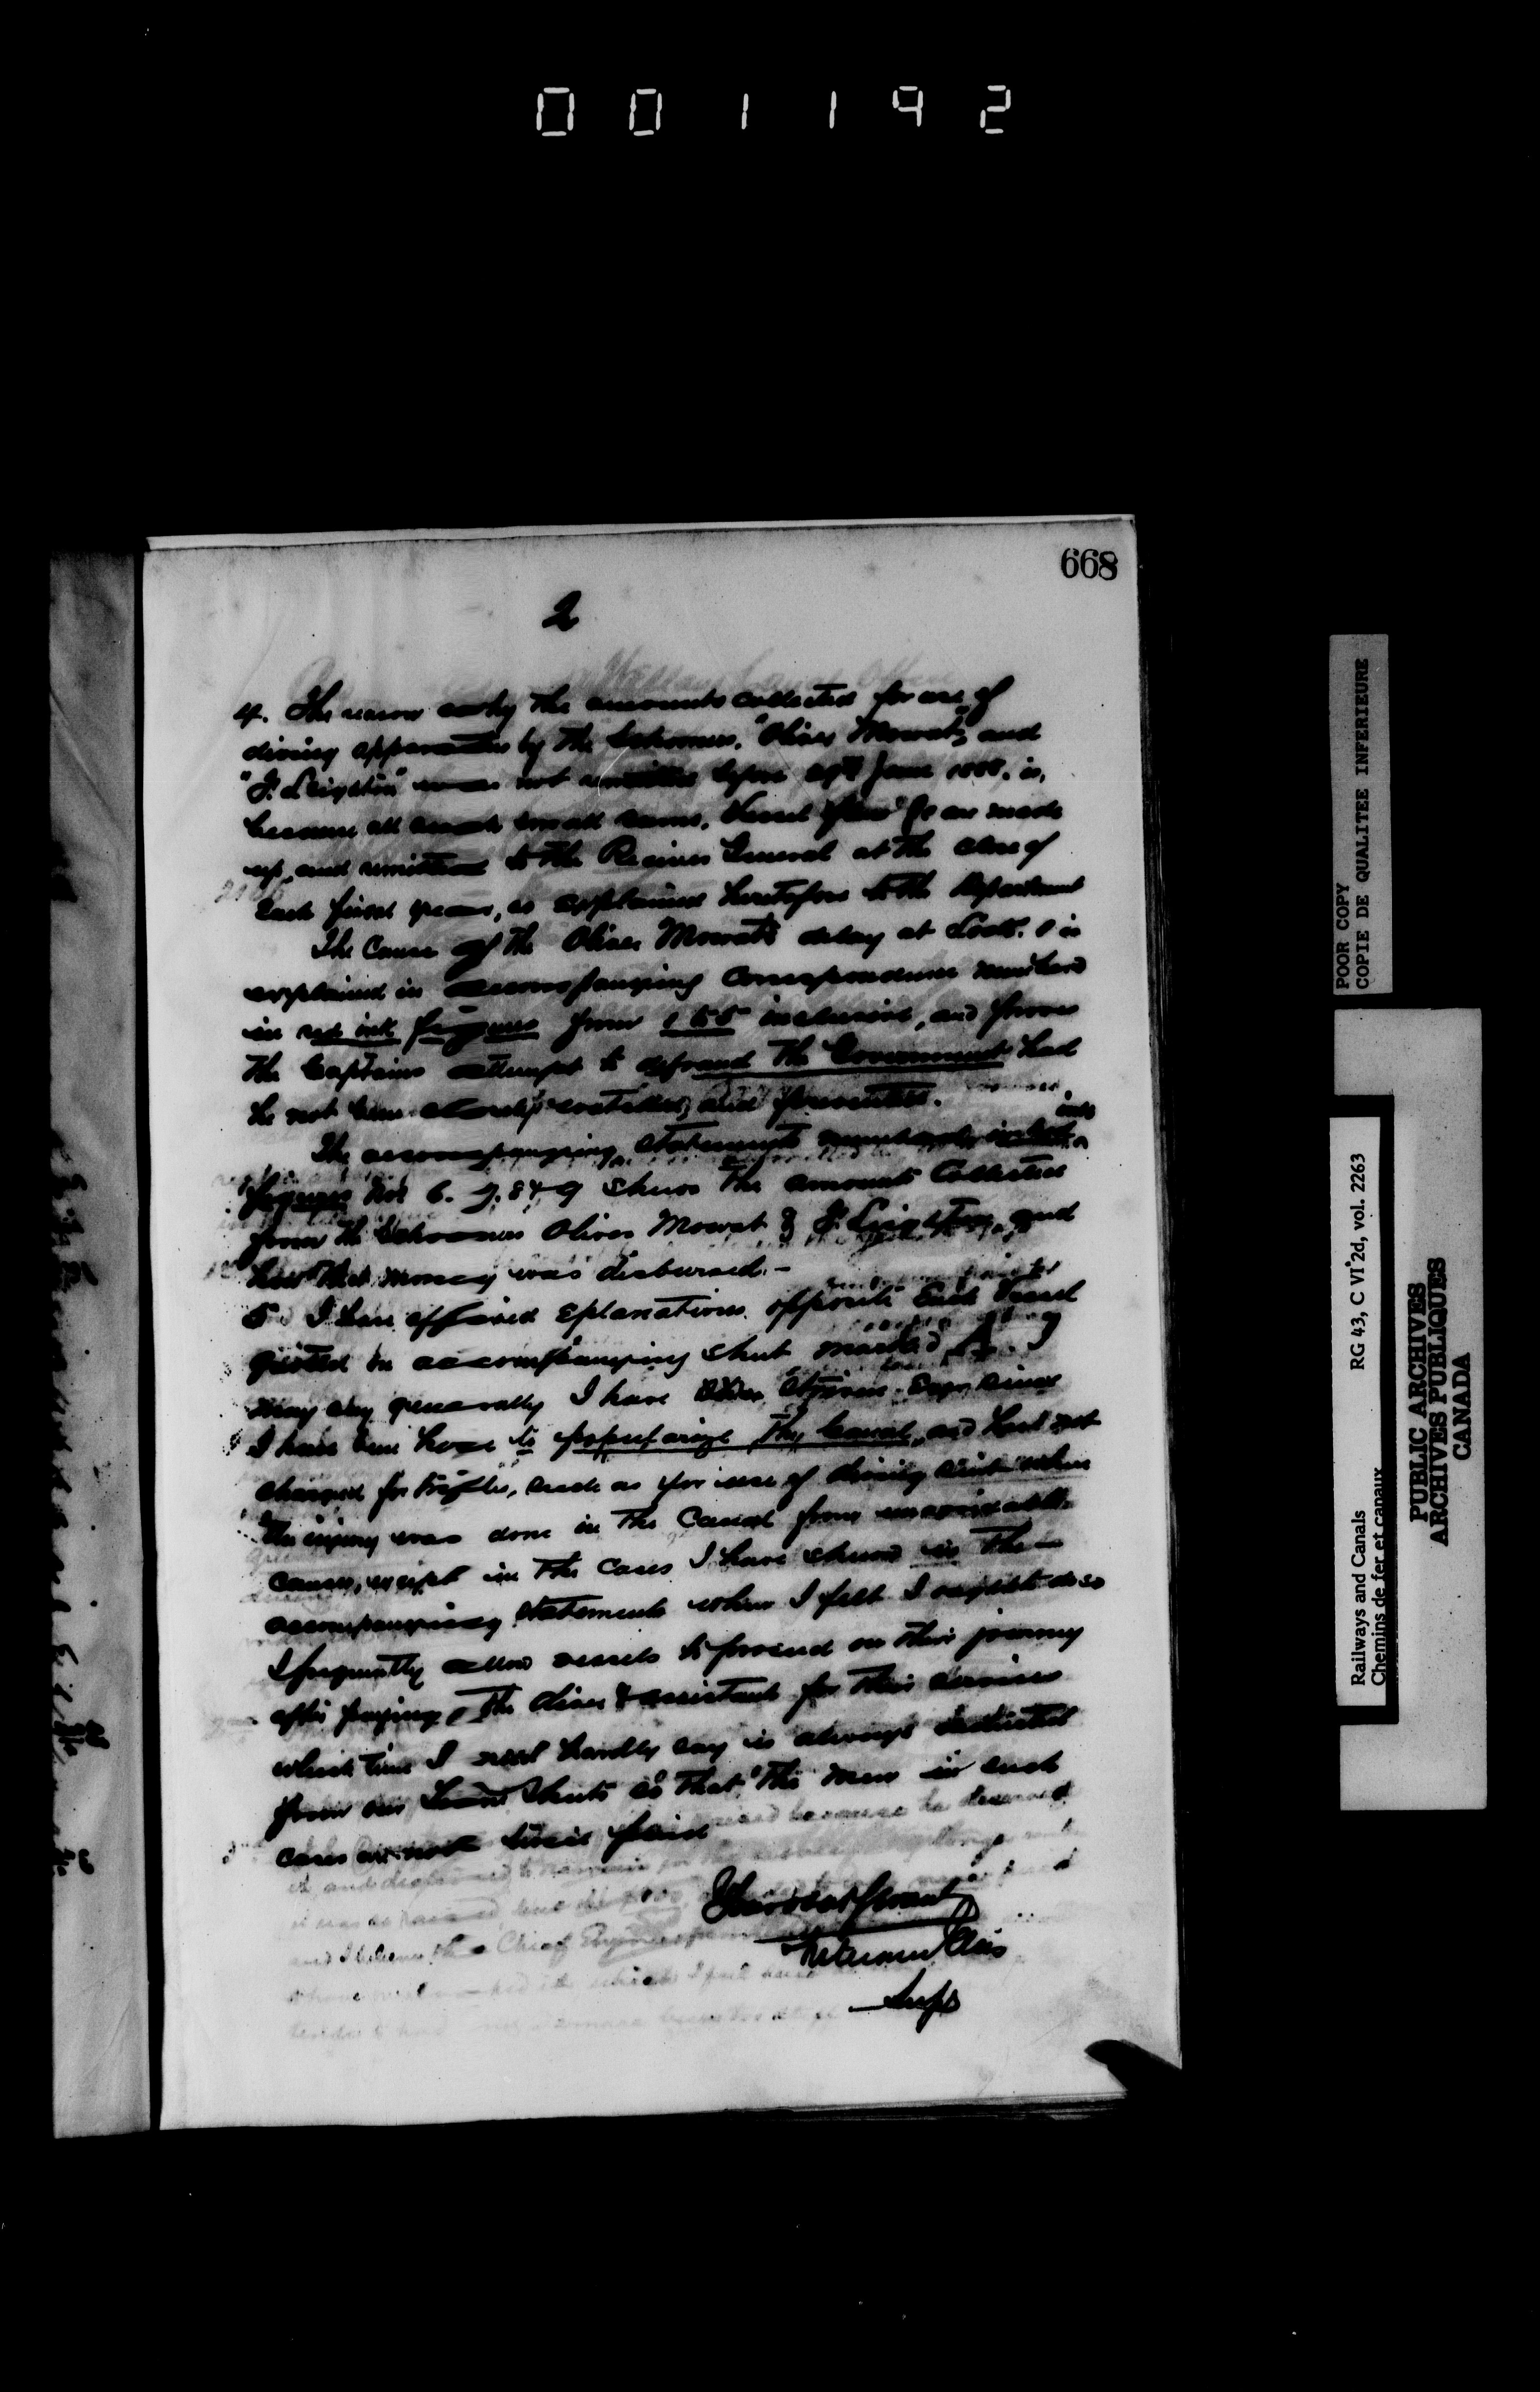 001192
668
2
4. The reason why the amounts collected for use of
diving apparatus by the Schooners, "Oliver Mowat" and
"J. Leighton" was not remitted before June 1888, is,
because all such small sums, Vessel fines &c are made
up, and remitted to the Receiver General at the close of
each fiscal year, as explained heretofore to the Department
The Cause of the Oliver Mowat's delay at Lock. 1 is
explained in accompanying correspondence numbered
in red ink figgures from 1 to 5 inclusive, and proves
the Captains attempt to defraud the Government had
he not been closely watched, and prevented.
The accompanying statements numbered in red ink
figgures Nos 6. 7. 8 & 9 shews the amounts Collected
from the Schooners Oliver Mowat & J. Leighton, and
how that money was disbursed. -
5. I have affixed Explanations opposite Each Vessel
quoted in accompanying sheet marked A. I
may say generally I have Ever since
I have been here to popularize the Canal, and had not
charged for trifles, such as for use of diving suit when
the injury was done in the Canal from unavoidable
causes, except in the Cases I have shewn in the
accompanying statements where I felt I ought to do so
I frequently allow vessels to proceed on their journey
after paying the diver & assistants for their services
which time I need hardly say is always deducted
from our time sheets so that the men in such
cases are not twice paid
Supt
POOR COPY
COPIE DE QUALITEE INFERIEURE
Railways and Canals RG 43, C VI 2d, vol. 2263
Chemins de fer et canaux
PUBLIC ARCHIVES
ARCHIVES PUBLIQUES
CANADA